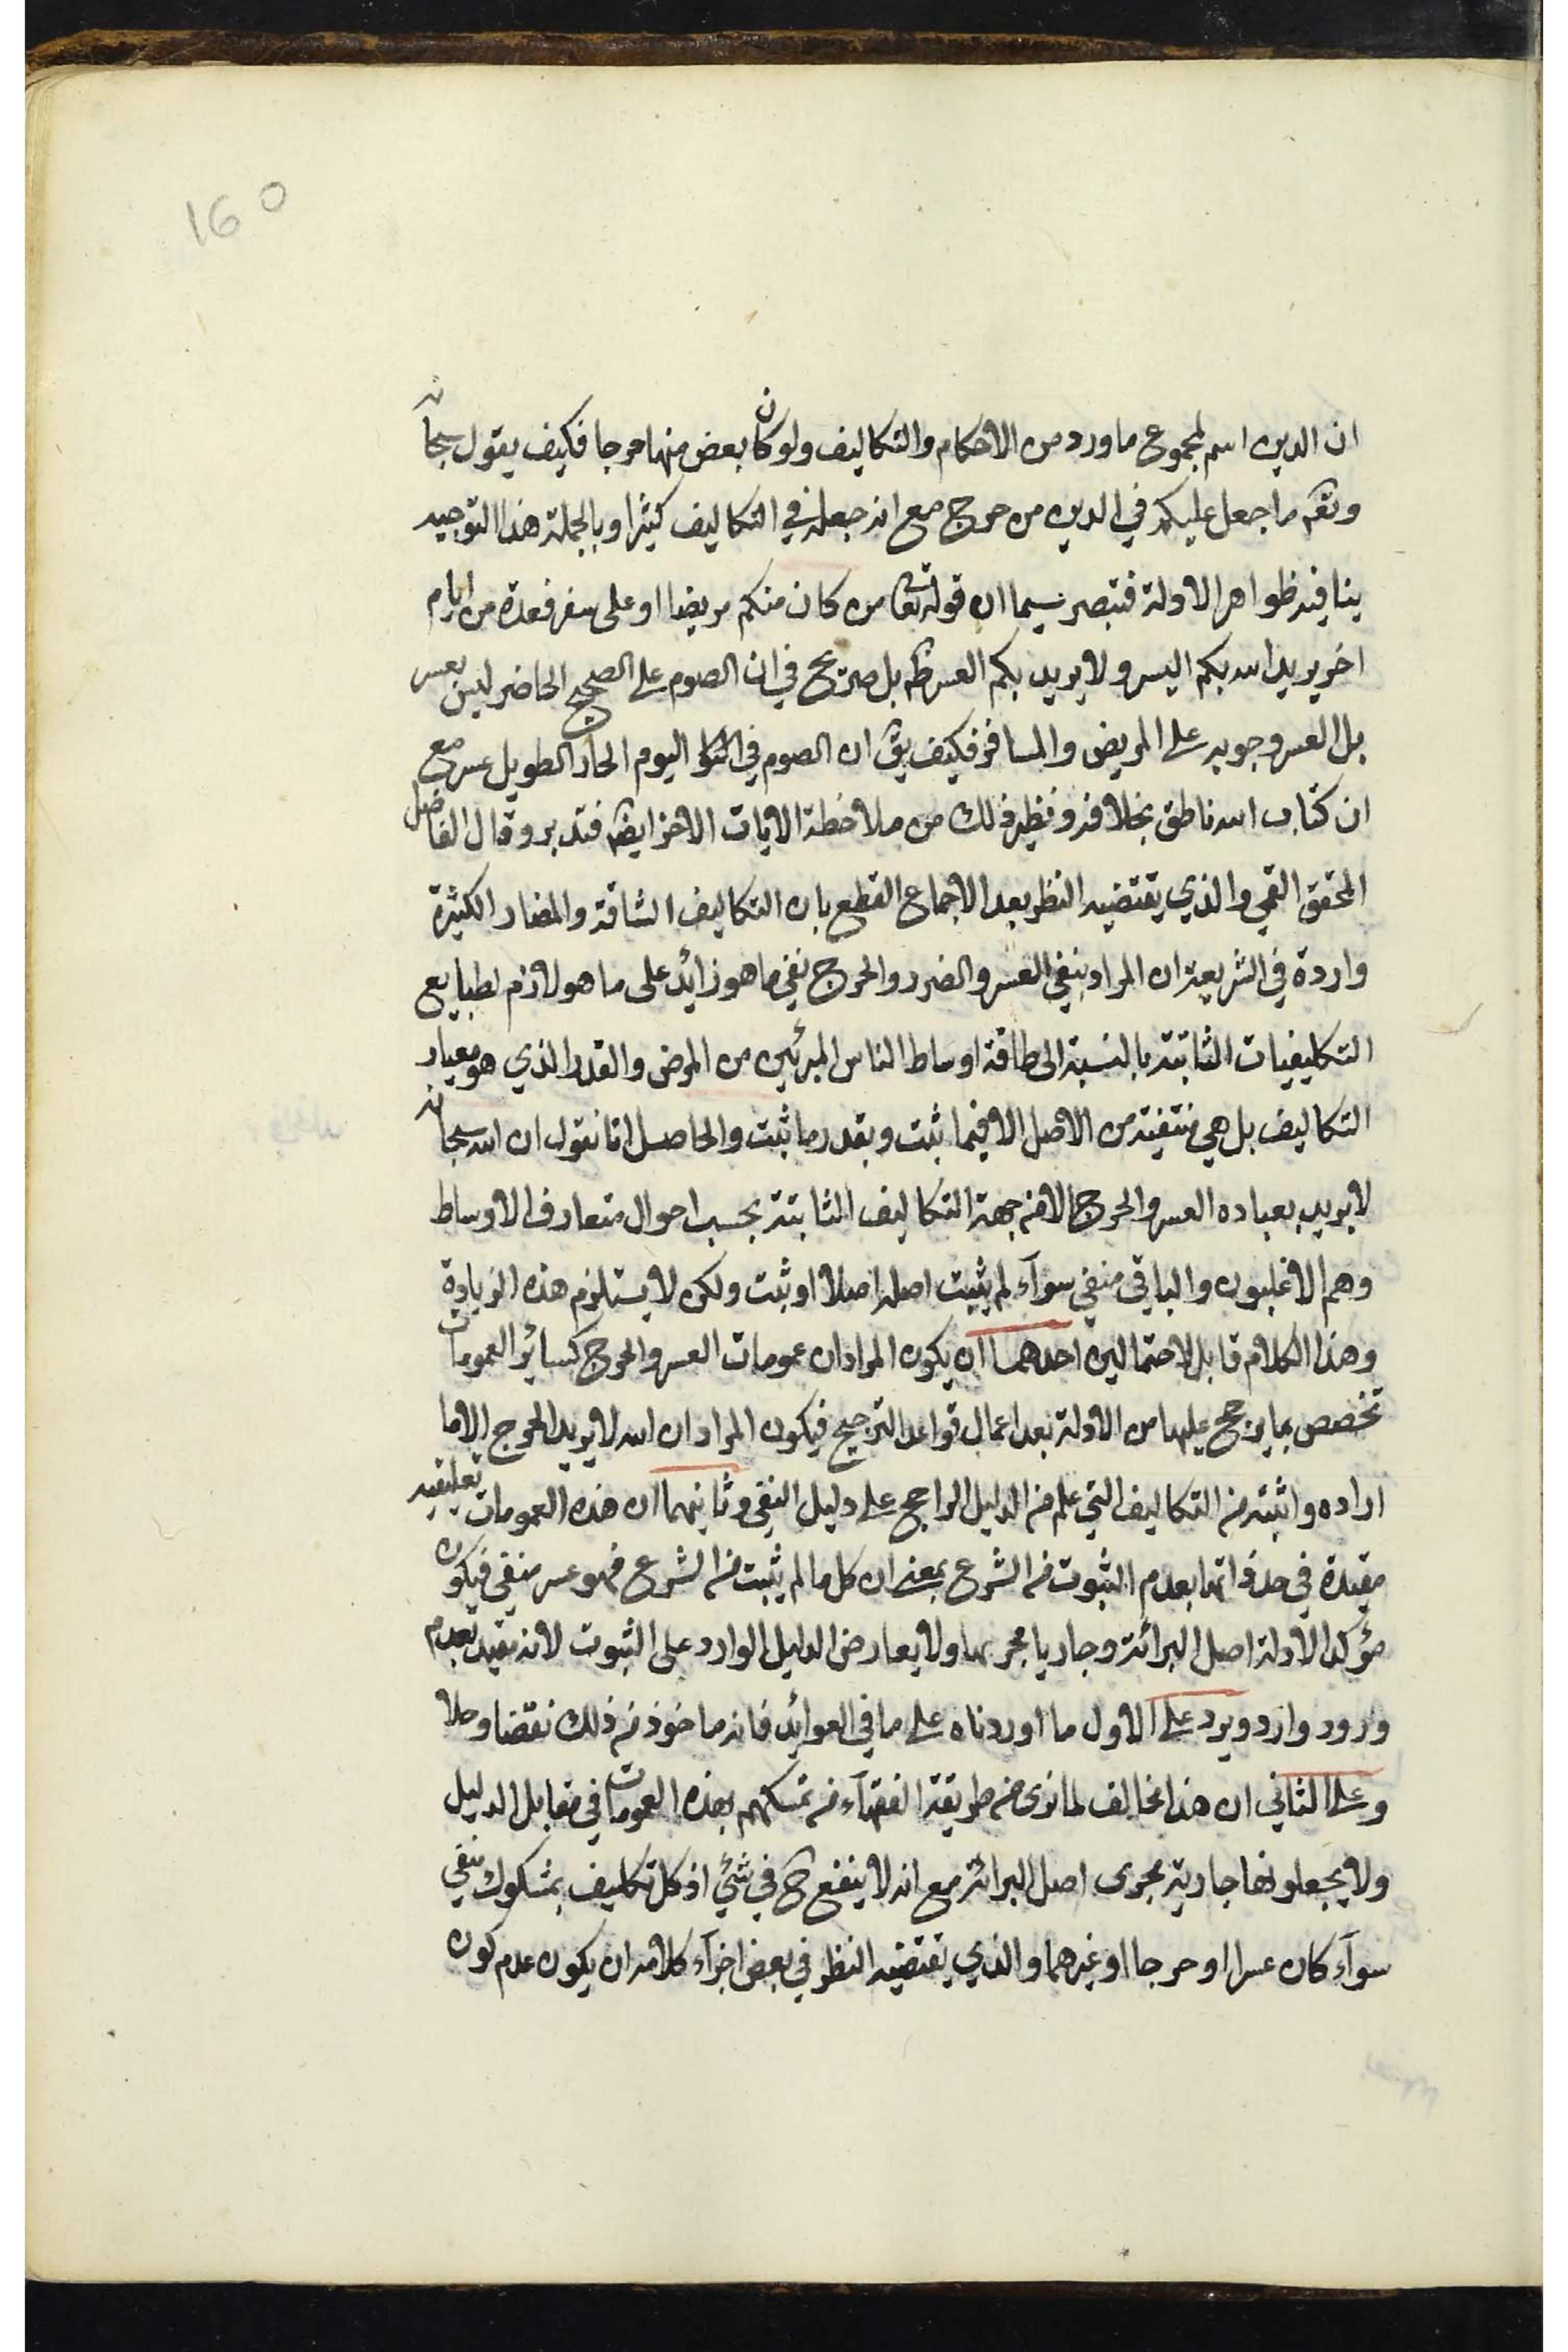 160
ان الدين اسم لمجموع ما ورد من الاحكام والتكاليف ولو كان بعض منها حرجا فكيف يقول سبحانه
وتعم ما جعل عليكم في الدين من حرج مع انه جعله في التكاليف كثيرا وبالجملة هذا التوجيه
ينافيه ظواهر الادلة فتبصر سيما ان قوله تعا من كان منكم مريضا او على سفر فعدة من ايام
اخر يريد الله بكم اليسر ولا يريد بكم العسر ظم بل صريح في ان الصوم على الصحيح الحاضر ليس بعسر
بل العسر وجوبه على المريض والمسافر فكيف يق ان الصوم في اليوم الحار الطويل عسر مع
ان كتاب الله ناطق بخلافه ونظير ذلك من ملاحظة الايات الاخر ايضم فتدبر وقال الفاضل
المحقق القمي والذي يقتضيه النظر بعد الاجماع القطع بان التكاليف الشاقة والمضار الكثيرة
واردة في الشريعة ان المراد بنفي العسر والضرر والحرج نفي ما هو زائد على ما هو لازم لطبايع
التكليفيات الثابتة بالنسبة الى طاقة اوساط الناس المبرئين من المرض والقدر الذي هو معيار
التكاليف بل هي منتفية من الاصل الا فيما ثبت وبقدر ما ثبت والحاصل انا نقول ان الله سبحانه
لا يريد بعباده العسر والحرج الا من جهة التكاليف الثابتة بحسب احوال متعارف الاوساط
وهم الاغلبون والباقي منفي سوآء لم يثبت اصله اصلا او ثبت ولكن لا يستلزم هذه الزيادة
وهذا الكلام قابل لاحتمالين احدهما ان يكون المراد ان عمومات العسر والحرج كسائر العمومات
تخصص بما يرجح عليها من الادلة بعد اعمال قواعد الترجيح فيكون المراد ان الله لا يريد الحرج الا ما
اراده واثبته من التكاليف التي علم من الدليل الراجح على دليل النفي وثانيهما ان هذه العمومات تعليقيه
مقيدة في حد ذاتها بعدم الثبوت من الشرع بمعنى ان كل ما لم يثبت من الشرع فهو عسر منفي فيكون
مؤكدا لادلة اصل البرائة وجاريا مجريها ولا يعارض الدليل الوارد على الثبوت لانه مقيد بعدم
ورود وارد ويرد على الاول ما اوردناه على ما في العوائد فانه ماخوذ من ذلك نقضا وحلا
وعلى الثاني ان هذا مخالف لما نرى من طريقة الفقهآء من تمسكهم بهذه العمومات في مقابل الدليل
ولا يجعلونها جارية مجرى اصل البرائة مع انه لا ينفع ح في شئ اذ كل تكليف بمشكوك منفي
سوآء كان عسرا او حرجا او غيرهما والذي يقتضيه النظر في بعض اجزآء كلامه ان يكون عدم كون